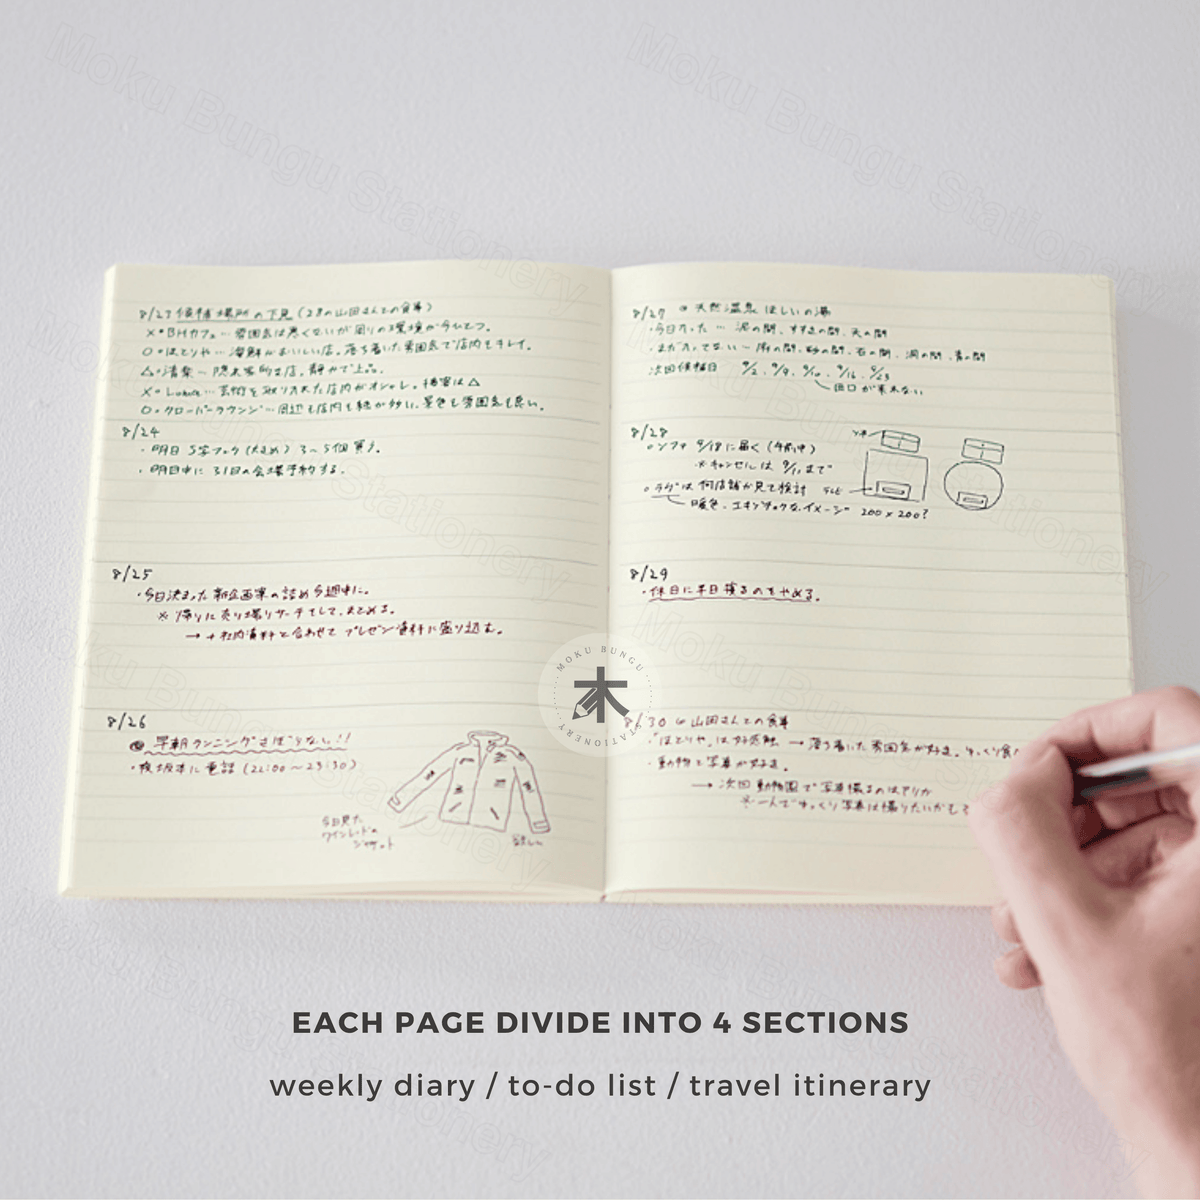 8/23 候補場所の下見 (28の山田さんとの食事)
×・BHカフェ… 雰囲気は悪くないが周りの環境が今ひとつ。
○・ほとりや… 海鮮がおいしい店。落ち着いた雰囲気で店内もキレイ。
△・清楽… 隠れ家的な店。静かで上品。
×・… 芸術を取り入れた店内がオシャレ。接客は△
○・クローバーラウンジ… 周辺も店内も緑が多い。景色も雰囲気も良い。
8/24
・明日 S字フック (大きめ) 3〜5個 買う。
・明日中に 31日の会場予約する。
8/25
・今日決まった 新企画案の詰め 今週中に。
※ 帰りに売り場リサーチして、まとめる。
→ + 社内資料と合わせて プレゼン資料に盛り込む。
8/26
早朝ランニング さぼらない!!
・夜 坂本に電話 (22:00〜23:30)
今日見た
ワインレッドの
ジャケット
欲しい
8/27 天然温泉 ほしいの湯
・今日入った … 泥の間、すすきの間、天の間
・まだ入ってない… 雨の間、砂の間、石の間、洞の間、青の間
次回候補日 9/2、9/9、9/10、9/16、9/23
田口が来れない
8/28
○ソファ 9/18に届く (午前中)
※キャンセルは 9/11まで
○ラグは 何店舗か見て検討
暖色、エキゾチックなイメージ 200×200?
ソファ
テレビ
8/29
・休日に半日寝るのをやめる。
8/30 山田さんとの食事
・「ほとりや」は好感触 → 落ち着いた雰囲気が好き。ゆっくり食
・動物と写真が好き。
→ 次回 動物園で写真撮るのはアリか
※一人でゆっくり写真は撮りたいかも
MOKU BUNGU
木
STATIONERY
EACH PAGE DIVIDE INTO 4 SECTIONS
weekly diary / to-do list / travel itinerary
Moku Bungu Stationery